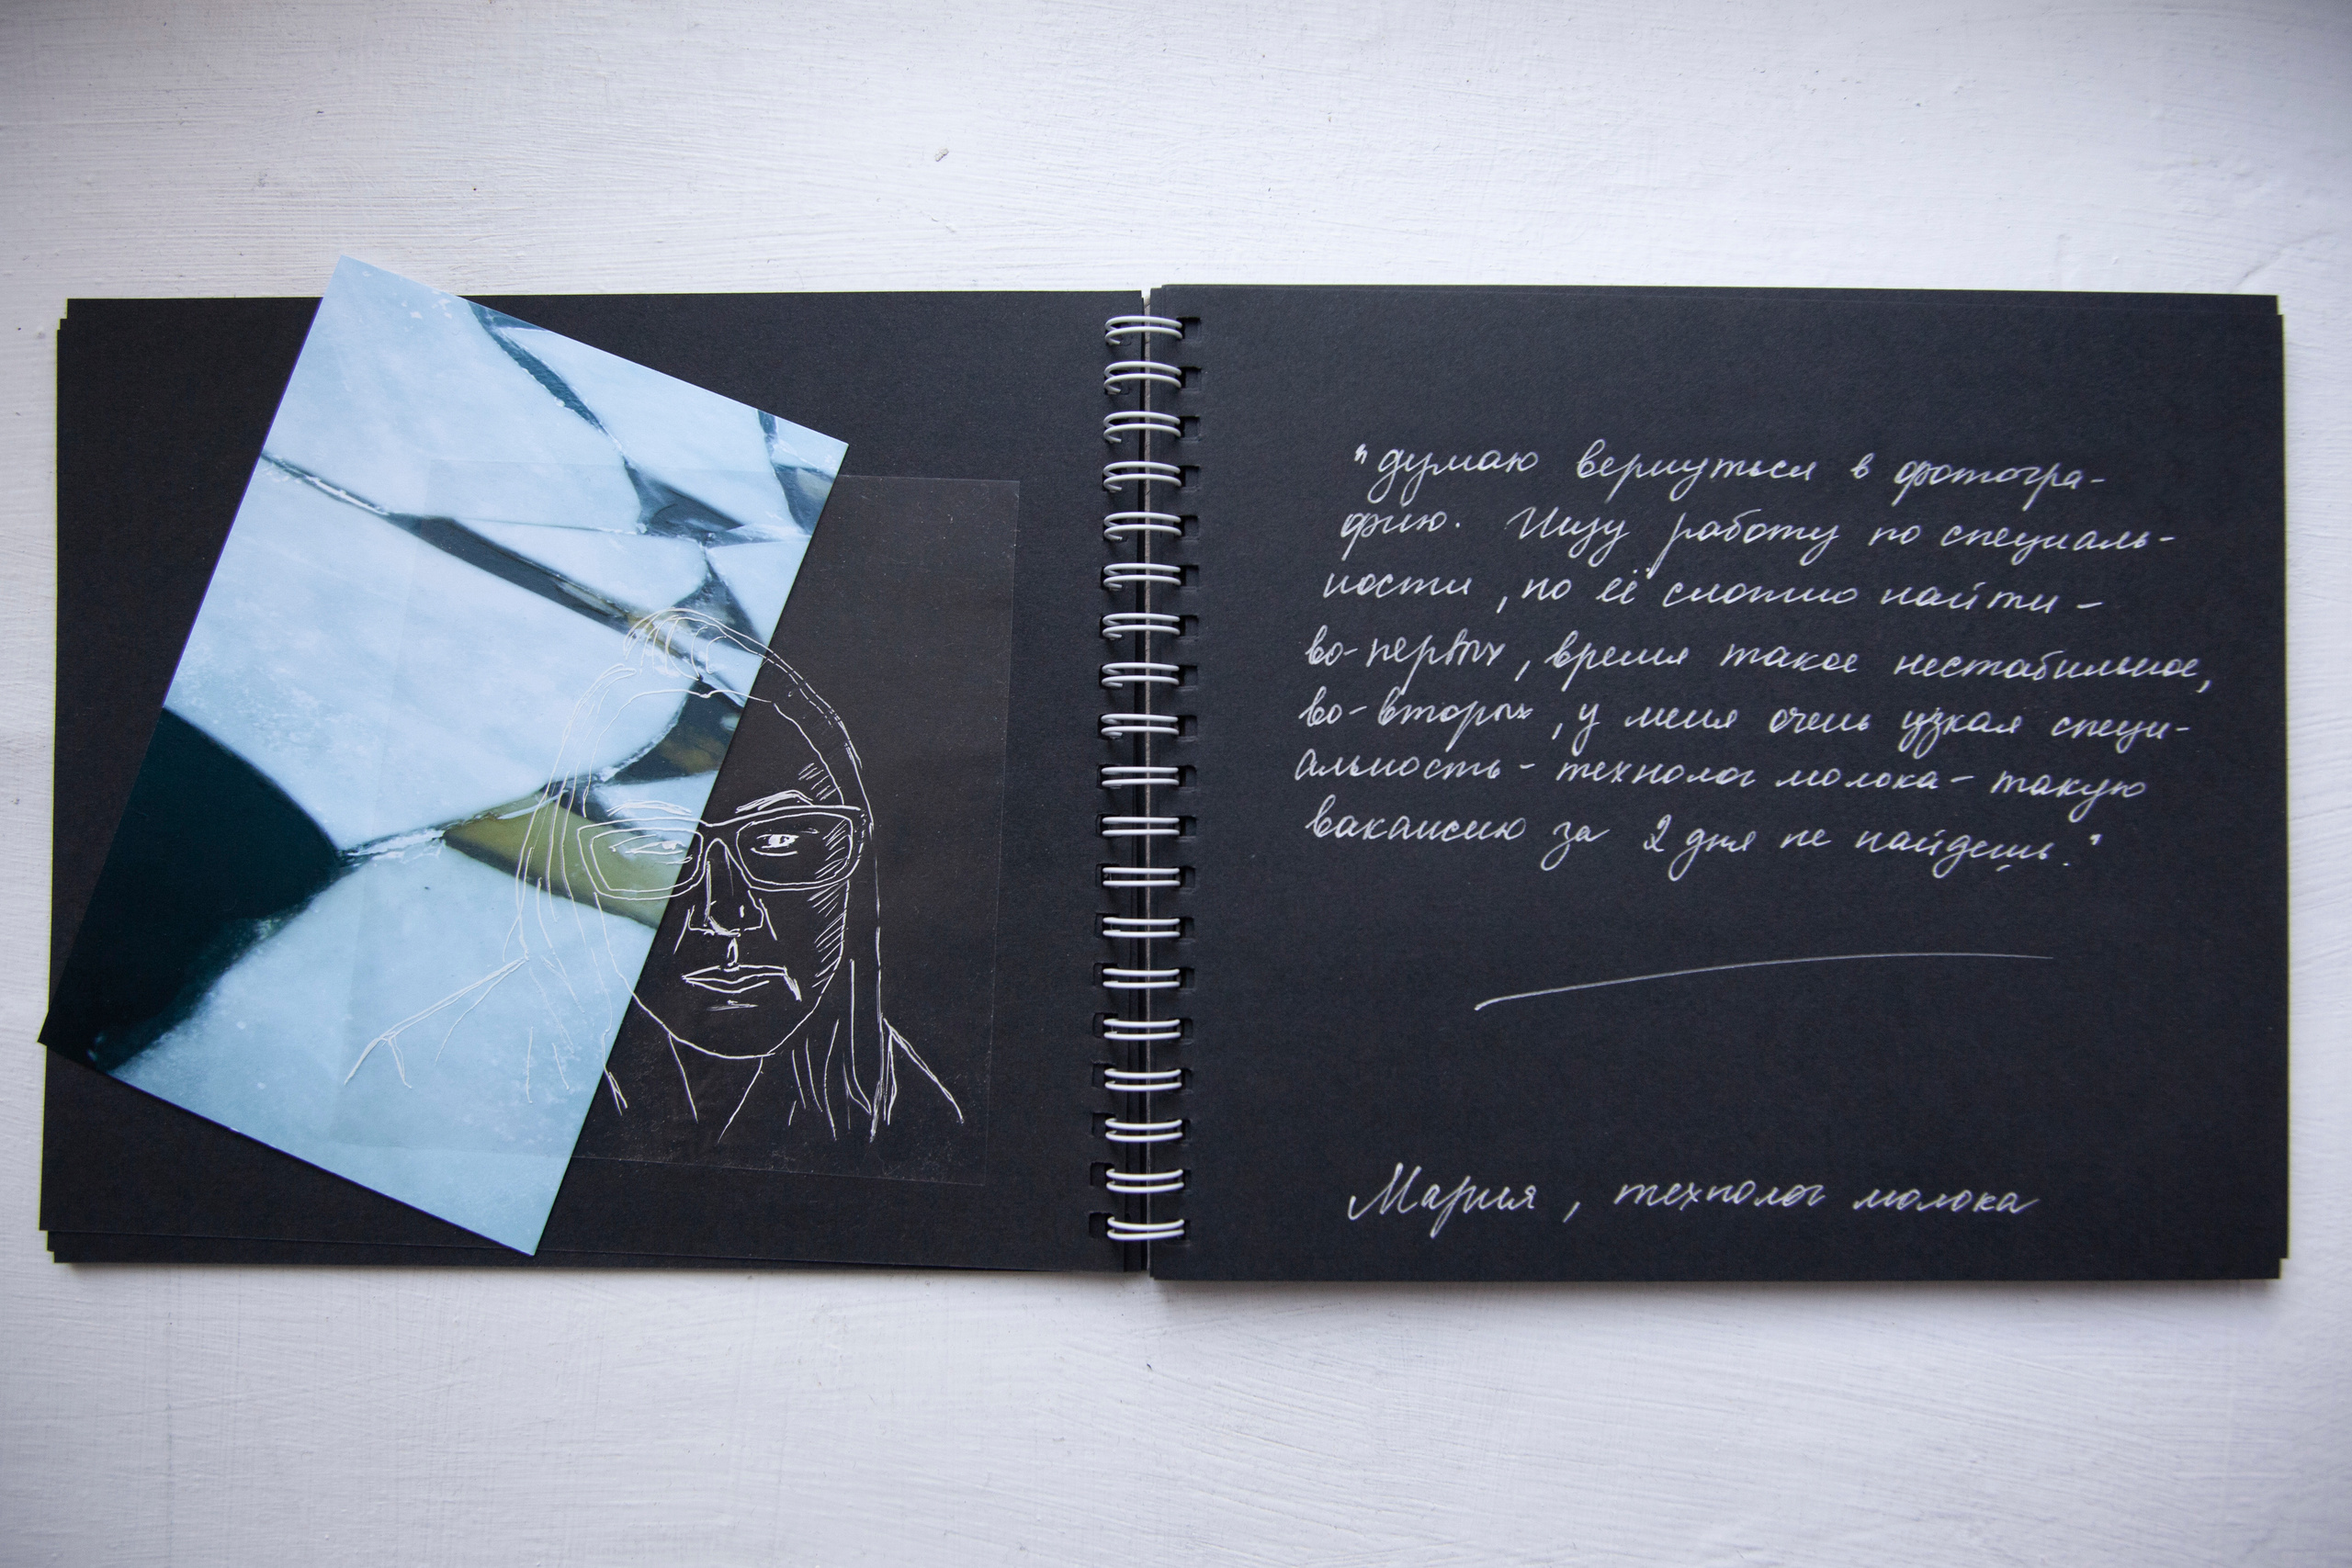 "думаю вернуться в фотогра-
фию. Ищу работу по специаль-
ности, но её сложно найти -
во-первых, время такое нестабильное,
во-вторых, у меня очень узкая специ-
альность - технолог молока - такую
вакансию за 2 дня не найдешь."
Мария, технолог молока